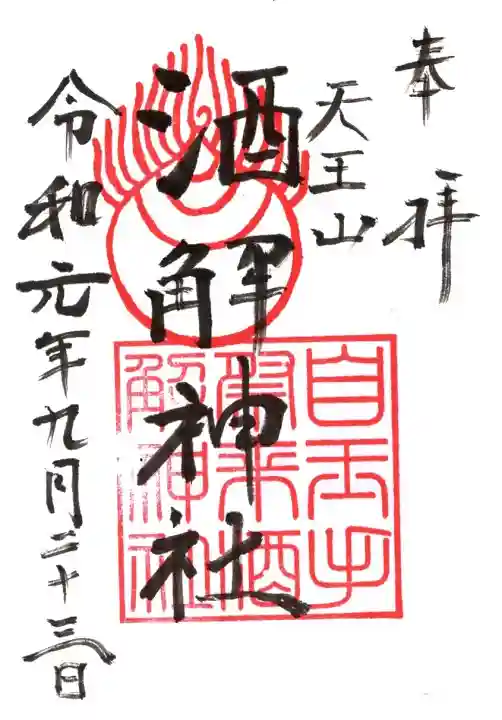 奉拝
天王山
酒解神社
令和元年九月二十三日
自玉手
祭来酒
解神社